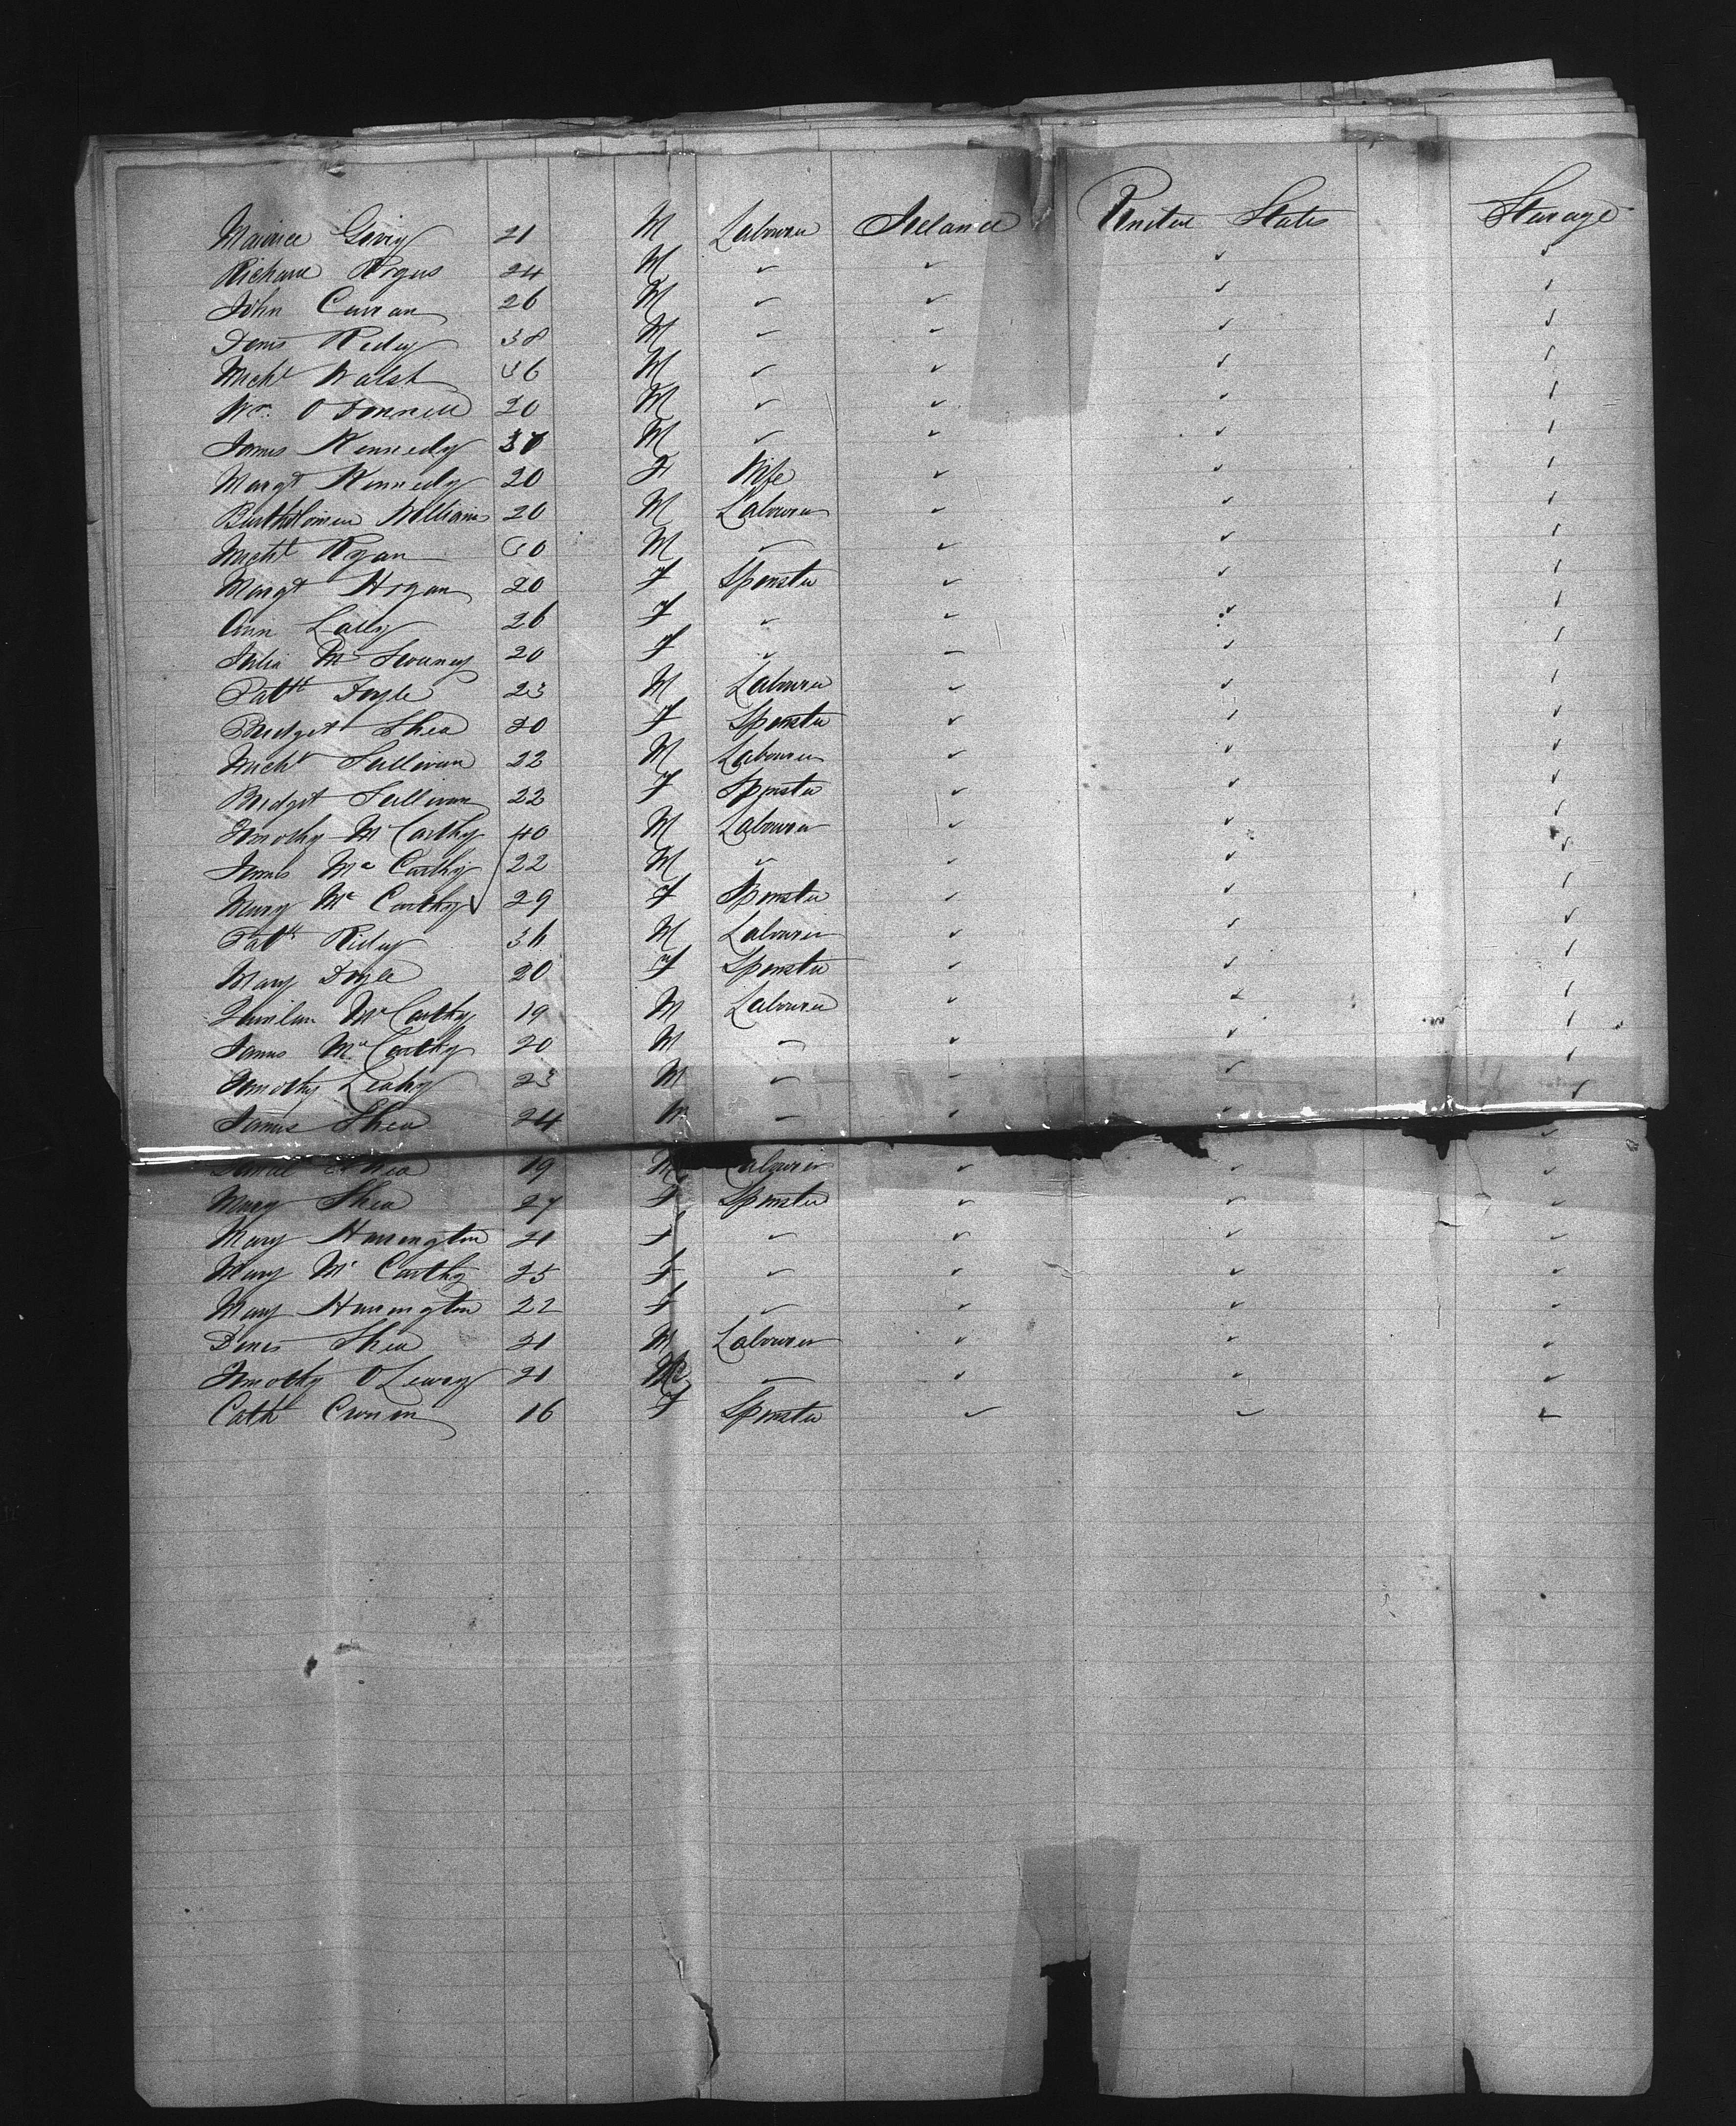 Maurice 21 M Labourer Ireland United States Sterage
Richard 24 M ✓ ✓ ✓ ✓
John Curran 26 M ✓ ✓ ✓ ✓
Denis 38 M ✓ ✓ ✓ ✓
Michl Walsh 36 M ✓ ✓ ✓ ✓
Wm. O Donnell 20 M ✓ ✓ ✓ ✓
James Kennedy M ✓ ✓ ✓ ✓
Margt Kennedy 20 F Wife ✓ ✓ ✓
Bartholomew Williams 20 M Labourer ✓ ✓ ✓
Michl Ryan 30 M ✓ ✓ ✓ ✓
Margt Hogan 20 F Spinster ✓ ✓ ✓
Ann Lally 26 F ✓ ✓ ✓ ✓
Julia 20 F ✓ ✓ ✓ ✓
Patk Doyle 23 M Labourer ✓ ✓ ✓
Bridget Shea 20 F Spinster ✓ ✓ ✓
Michl Sullivan 22 M Labourer ✓ ✓ ✓
Bridget Sullivan 22 F Spinster ✓ ✓ ✓
Timothy McCarthy 40 M Labourer ✓ ✓ ✓
James Mc Carthy 22 M ✓ ✓ ✓ ✓
Mary Mc Carthy 29 F Spinster ✓ ✓ ✓
Patk M Labourer ✓ ✓ ✓
Mary Doyle 20 F Spinster ✓ ✓ ✓
McCarthy 19 M Labourer ✓ ✓ ✓
James McCarthy 20 M ✓ ✓ ✓ ✓
Timothy Leahy 23 M ✓ ✓ ✓ ✓
James Shea 24 M ✓ ✓ ✓ ✓
Daniel Shea 19 M Labourer ✓ ✓ ✓
Mary Shea 27 F Spinster ✓ ✓ ✓
Mary Harrington 21 F ✓ ✓ ✓ ✓
Mary Mc Carthy 25 F ✓ ✓ ✓ ✓
Mary Harrington 22 F ✓ ✓ ✓ ✓
Denis Shea 21 M Labourer ✓ ✓ ✓
Timothy O Leary 21 M ✓ ✓ ✓ ✓
Cath Cronin 16 F Spinster ✓ ✓ ✓